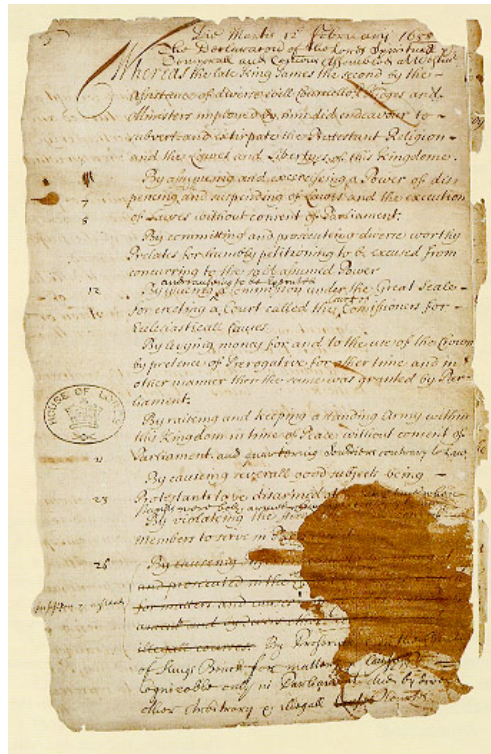 Die Martis 12 February 1688
The Declaration of the Lords Spirituall &
Temporall and Com̃ons Assembled at Westmr
Whereas the late King James the second by the
Assistance of diverse evill Councellors Judges and
Ministers imployed by him did endeavour to
subvert and extirpate the Protestant Religion
and the Lawes and Libertyes of this Kingdome.
By assuming and exercising a Power of dis-
7 pencing and suspending of Lawes and the execution
8 of Lawes without consent of Parliament.
By committing and prosecuting diverse worthy
Prelates for humbly petitioning to be excused from
concurring to the said assumed Power
and causing to be executed
12 By issueing a Commission under the Great Seale
for erecting a Court called the Court of Com̃issioners for
Ecclesiasticall Causes
By levying money for and to the use of the Crown
by pretence of Prerogative for other time and in
other manner then the same was granted by Par-
liament.
HOUSE OF LORDS
By raiseing and keeping a standing Army within
this Kingdom in time of Peace without consent of
Parliament and quartering Souldiers contrary to Law
By causeing severall good subjects being
23 Protestants to be disarmed at
By violating the
members to serve in
26 By causeing
and prosecuted in the
for matters and causes
By
of Kings Bench for matters
Cognizable only in Parliament and by
other Arbitrary & illegall